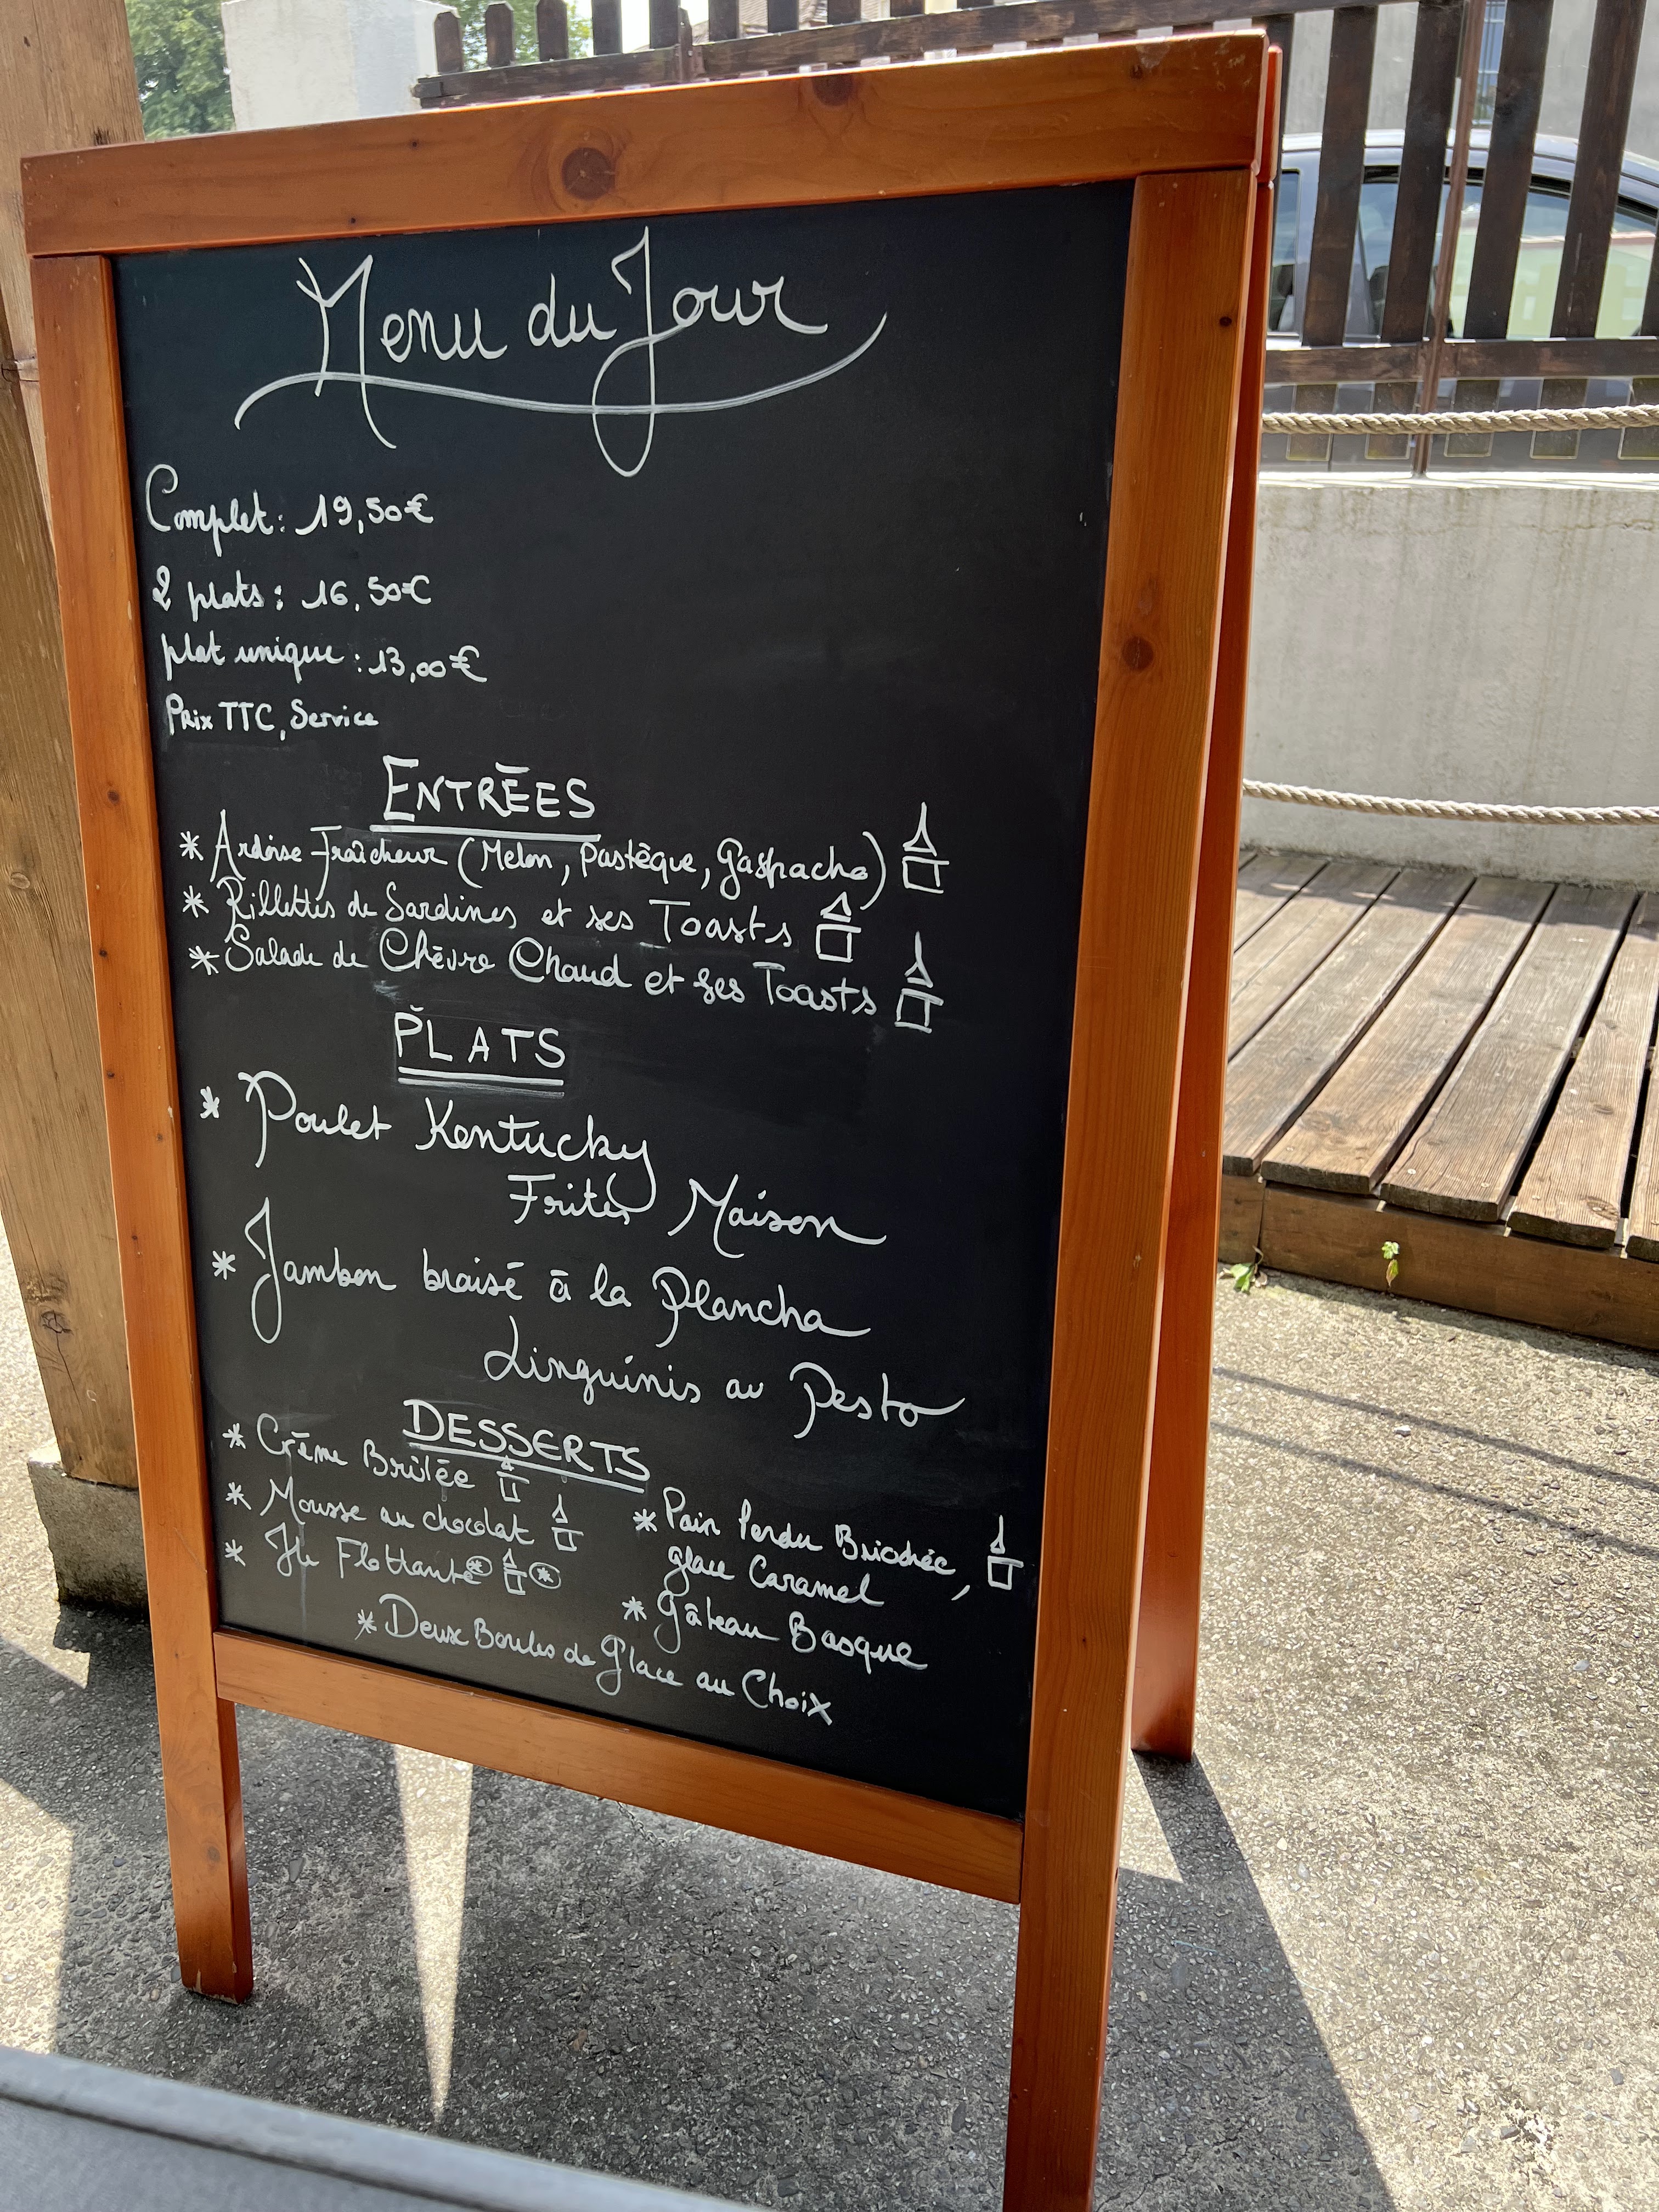 Menu du Jour
Complet : 19,50€
2 plats : 16,50€
plat unique : 13,00€
Prix TTC, Service
ENTRÉES
* Ardoise Fraîcheur (Melon, Pastèque, Gaspacho)
* Rillettes de Sardines et ses Toasts
* Salade de Chèvre Chaud et ses Toasts
PLATS
* Poulet Kentucky
Frites Maison
* Jambon braisé à la Plancha
Linguinis au Pesto
DESSERTS
* Crème Brûlée
* Mousse au chocolat
* Île Flottante
* Pain Perdu Brioché,
glace Caramel
* Gâteau Basque
* Deux Boules de Glace au Choix